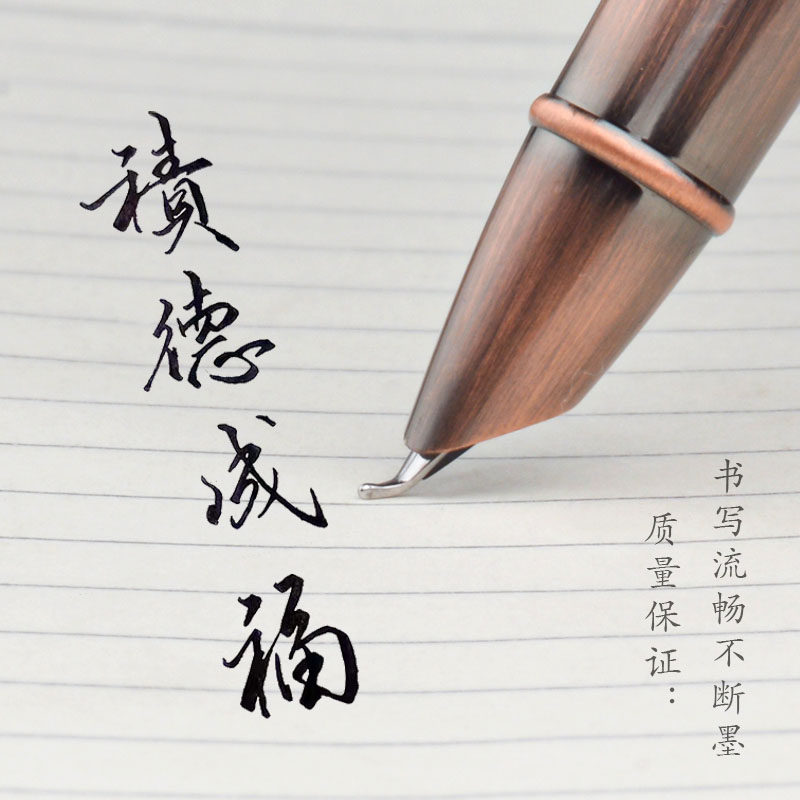 積德成福
书写流畅不断墨
质量保证：